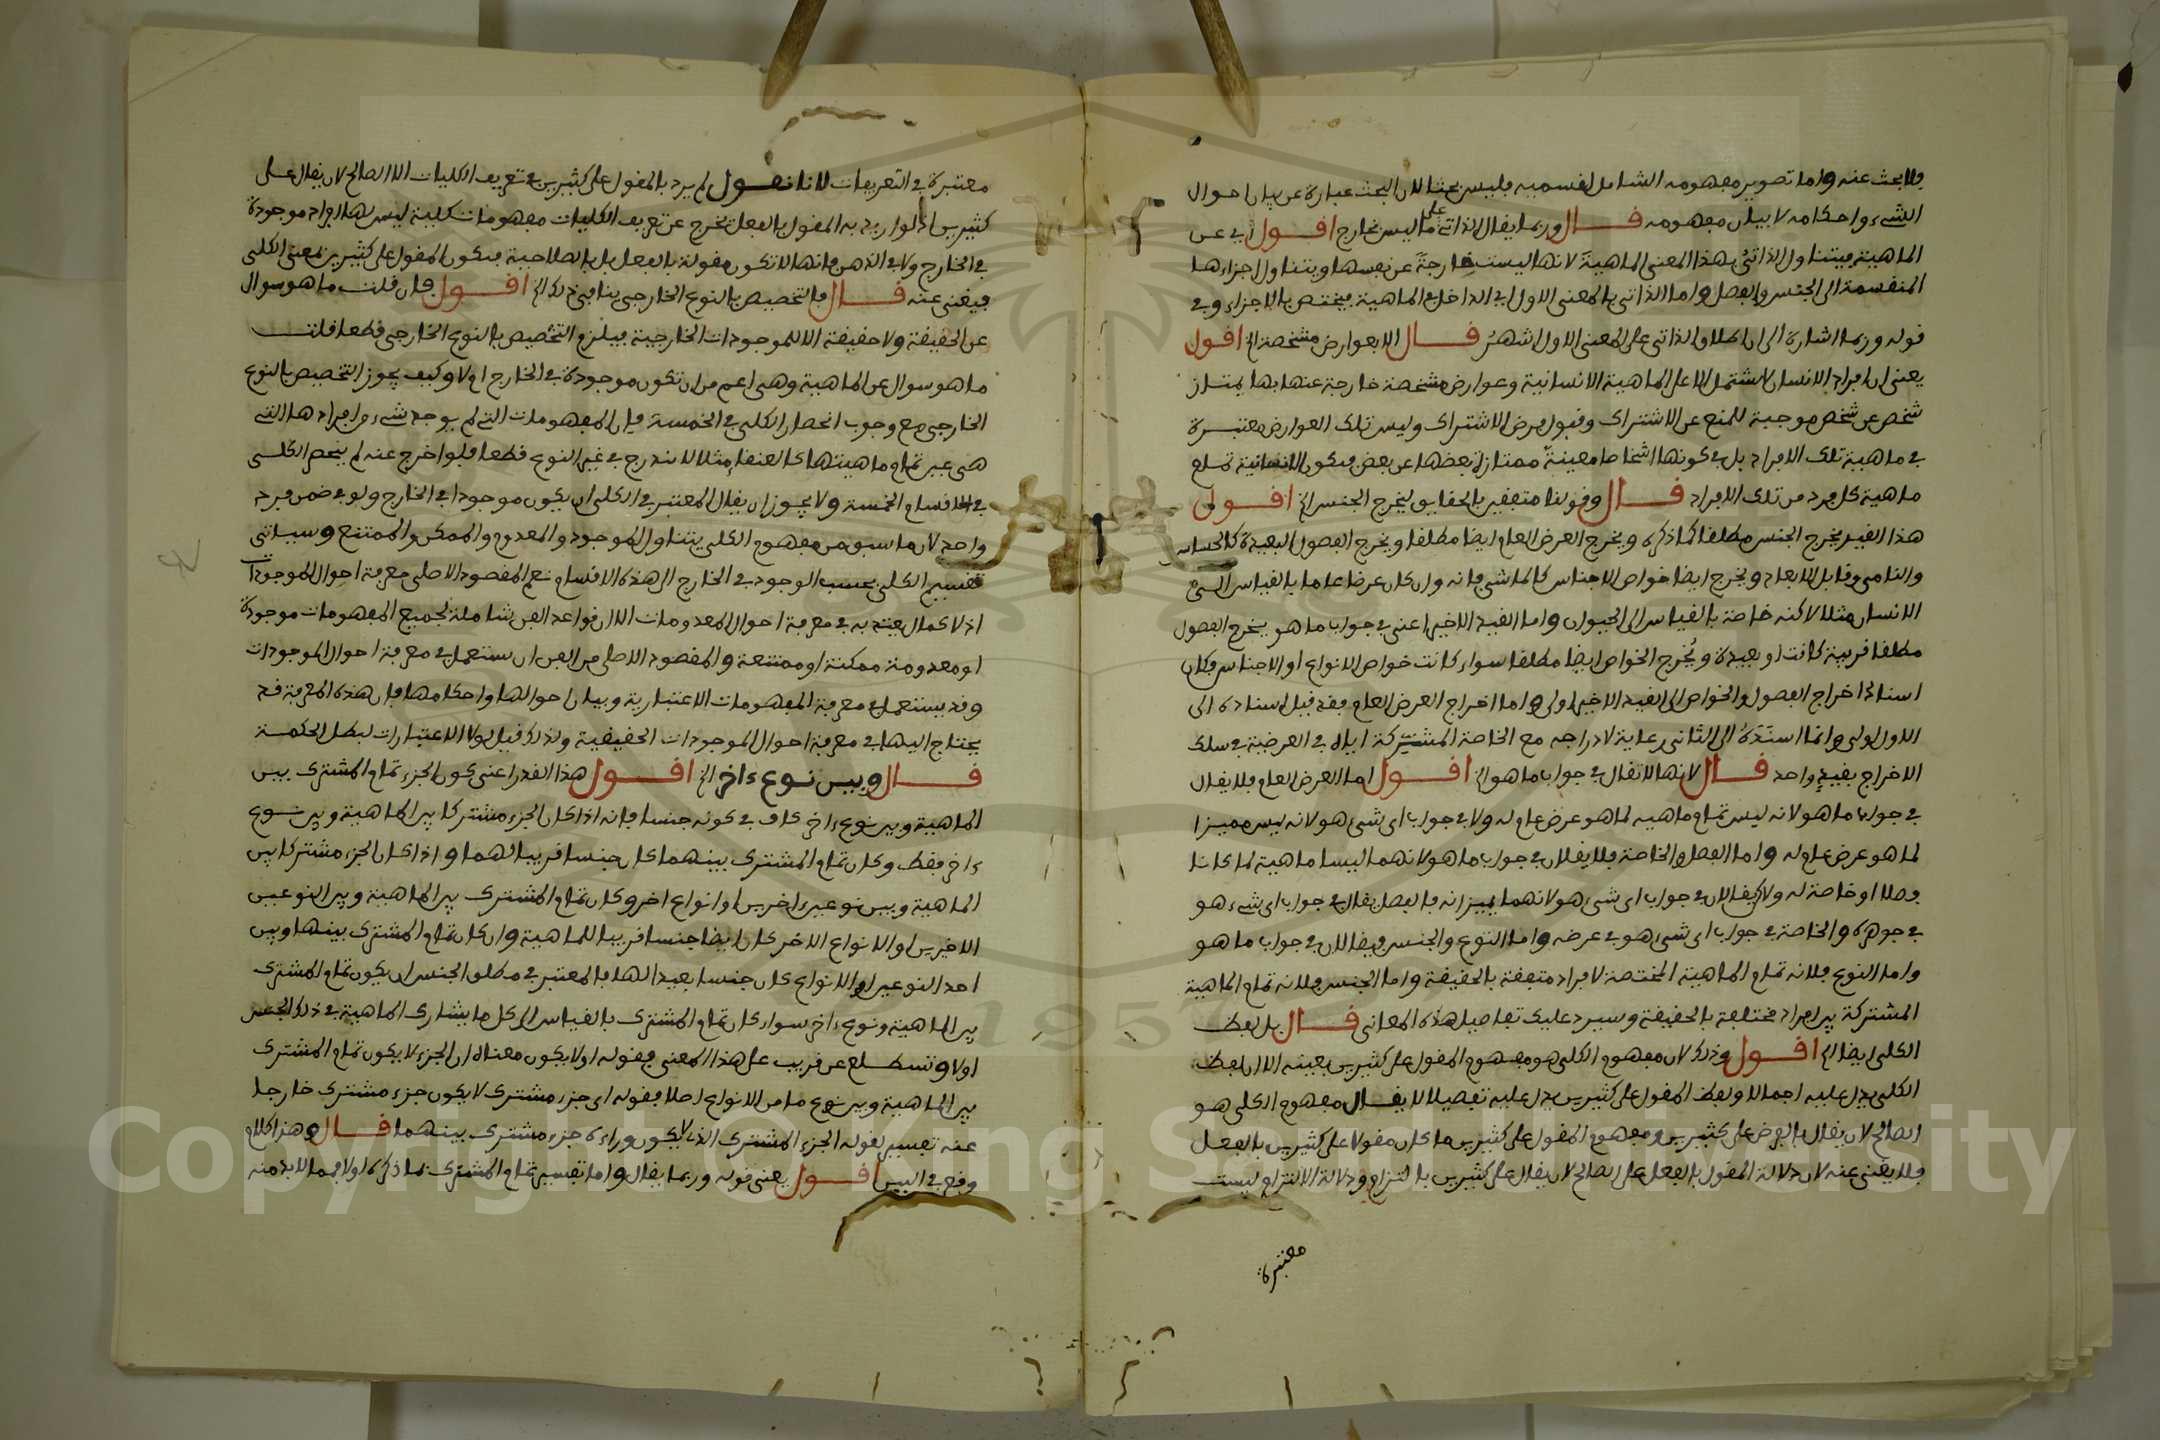 فلا بحث عنه واما تصوير مفهومه الشامل لقسميه فليس بحثا لان البحث عبارة عن بيان احوال
الشيء واحكامه لا بيان مفهومه قـــال وربما يقال الذاتي على ما ليس بخارج اقـــول اي عن
الماهية فيتناول الذاتي بهذا المعنى الماهية لانها ليست خارجة عن نفسها ويتناول اجزاءها
المنقسمة الى الجنس والفصل واما الذاتي بالمعنى الاول اي الداخل في الماهية فيختص بالاجزاء وفي
قوله وربما اشارة الى ان اطلاق الذاتي على المعنى الاول اشهر قـــال الا بعوارض مشخصة الخ اقول
يعني ان افراد الانسان لا يشتمل الا على الماهية الانسانية وعوارض مشخصة خارجة عنها بها يمتاز
شخص عن شخص موجبة للمنع عن الاشتراك وقبول فرض الاشتراك وليس تلك العوارض معتبرة
في ماهية تلك الافراد بل في كونها اشخاصا معينة ممتازة بعضها عن بعض فيكون الانسانية تمام
ماهية كل فرد من تلك الافراد قـــال وقولنا متفقين بالحقايق ليخرج الجنس الخ اقـــول
هذا القيد يخرج الجنس مطلقا كما ذكره ويخرج العرض العام ايضا مطلقا ويخرج الفصول البعيدة كالحساس
والنامي وقابل الابعاد ويخرج ايضا خواص الاجناس كالماشي فانه وان كان عرضا عاما بالقياس الى
الانسان مثلا لاكنه خاصة بالقياس الى الحيوان واما القيد الاخير اعني في جواب ما هو يخرج الفصول
مطلقا قريبة كانت او بعيدة ويُخرج الخواص ايضا مطلقا سواء كانت خواص الانواع او الاجناس فكان
اسناد اخراج الفصول والخواص الى القيد الاخير اولى واما اخراج العرض العام فقد قيل اسناده الى
الاول اولى وانما اسنده الى الثاني رعاية لادراجه مع الخاصة المشتركة اياه في العرضية في سلك
الاخراج بقيد واحد قـــال لانها لا تقال في جواب ما هو الخ اقـــول اما العرض العام فلا يقال
في جواب ما هو لانه ليس تمام ماهيه لما هو عرض عام له ولا في جواب اي شيء هو لانه ليس مميزا
لما هو عرض عام له واما الفصل والخاصة فلا يقالان في جواب ما هو لانهما ليسا ماهية لما كانا
فصلا او خاصة له ولاكن يقالان في جواب اي شيء هو لانهما يميزانه فالفصل يقال في جواب اي شيء هو
في جوهره والخاصة في جواب اي شيء هو في عرضه واما النوع والجنس فيقالان في جواب ما هو
واما النوع فلانه تمام الماهية المختصة لافراد متفقة بالحقيقة واما الجنس فلانه تمام الماهية
المشتركة بين افراد مختلفة بالحقيقة وسيرد عليك تفاصيل هذه المعاني قـــال بل لفظ
الكلي ايضا الخ اقـــول وذلك لان مفهوم الكلي هو مفهوم المقول على كثيرين بعينه الا ان لفظ
الكلي يدل عليه اجمالا ولفظ المقول على كثيرين يدل عليه تفصيلا لا يقـــال مفهوم الكلي هو
الصالح لان يقال بالفرض على كثيرين ومفهوم المقول على كثيرين ما كان مقولا على كثيرين بالفعل
فلا يغني عنه لان دلالة المقول بالفعل على الصالح لان يقال على كثيرين بالتزام ودلالة الالتزام ليست
معتبرة
معتبرة في التعريفات لانا نقـــول لم يرد بالمقول على كثيرين في تعريف الكليات الا الصالح لان يقال على
كثيرين اذ لو اريد به المقول بالفعل لخرج عن تعريف الكليات مفهومات كلية ليس لها افراد موجودة
في الخارج ولا في الذهن فانها لا تكون مقولة بالفعل بل بالصلاحية فيكون المقول على كثيرين بمعنى الكلي
فيغني عنه قـــال فالتخصيص بالنوع الخارجي ينافي ذلك الخ اقـــول فان قلت ما هو سوال
عن الحقيقة ولا حقيقة الا للموجودات الخارجية فيلزم التخصيص بالنوع الخارجي قطعا قلت
ما هو سوال عن الماهية وهي اعم من ان تكون موجودة في الخارج ام لا وكيف يجوز التخصيص بالنوع
الخارجي مع وجوب انحصار الكلي في الخمسة فان المفهومات التي لم يوجد شيء من افرادها التي
هي عين تمام ماهيتها كالعنقاء مثلا لا يندرج في غير النوع قطعا فلو اخرج عنه لم ينحصر الكلي
في الاقسام الخمسة ولا يجوز ان يقال المعتبر في الكلي ان يكون موجودا في الخارج ولو في ضمن فرد
واحد لان ما سبق من مفهوم الكلي يتناول الموجود والمعدوم والممكن والممتنع وسياتي
تقسيم الكلي بحسب الوجود في الخارج الى هذه الاقسام نعم المقصود الاصلي معرفة احوال الموجودات
اذ لا كمال يعتد به في معرفة احوال المعدومات الا ان قواعد الفن شاملة لجميع المفهومات موجودة
او معدومة ممكنة او ممتنعة والمقصود الاصلي من الفن ان يستعمل في معرفة احوال الموجودات
وقد يستعمل في معرفة المفهومات الاعتبارية وبيان احوالها واحكامها فان هذه المعرفة قد
يحتاج اليها في معرفة احوال الموجودات الحقيقية ولذلك قيل لولا الاعتبارات لبطل الحكمة
قـــال وبين نوع ءاخر الخ اقـــول هذا القدر اعني كون الجزء تمام المشترك بين
الماهية وبين نوع ءاخر كاف في كونه جنسا فانه اذا كان الجزء مشتركا بين الماهية وبين نوع
ءاخر فقط وكان تمام المشترك بينهما كان جنسا قريبا لهما واذا كان الجزء مشتركا بين
الماهية وبين نوعين ءاخرين او انواع اخر وكان تمام المشترك بين الماهية وبين النوعين
الاخرين او الانواع الاخر كان ايضا جنسا قريبا للماهية وان كان تمام المشترك بينها وبين
احد النوعين او الانواع كان جنسا بعيدا لها فالمعتبر في مطلق الجنس ان يكون تمام المشترك
بين الماهية ونوع ءاخر سواء كان تمام المشترك بالقياس الى كل ما يشارك الماهية في ذلك الجنس
اولا وتسطلع عن قريب على هذا المعنى فقوله اولا يكون معناه ان الجزء لا يكون تمام المشترك
بين الماهية وبين نوع ما من الانواع اصلا فقوله اي جزء مشترك لا يكون جزء مشترك خارجا
عنه تفسير لقوله الجزء المشترك الذي لا يكون وراءه جزء مشترك بينهما قـــال وهذا كلام
وقع في البين اقـــول يعني قوله وربما يقال واما تفسير تمام المشترك بما ذكره اولا فمما لا بد منه
Copyright © King Saud University